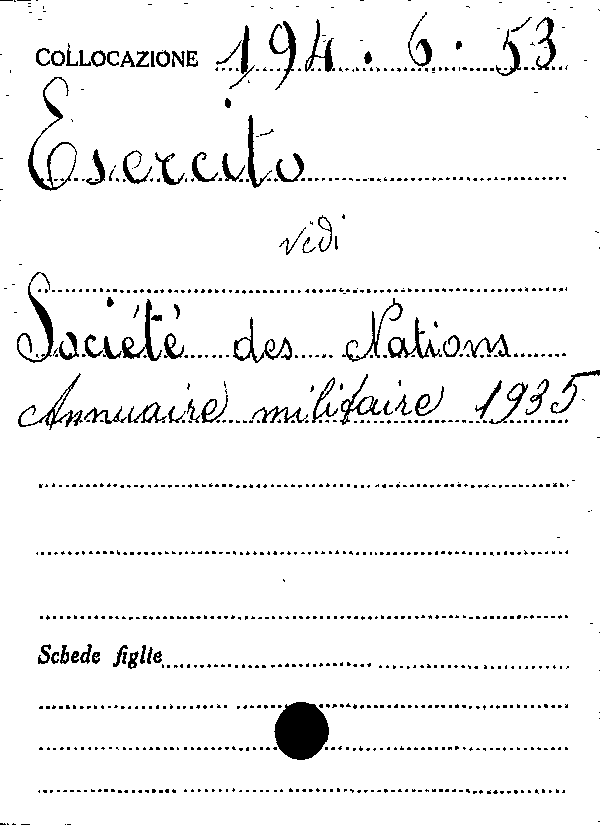 COLLOCAZIONE 194.6.53
Esercito
vedi
Société des Nations
Annuaire militaire 1935
Schede figlie